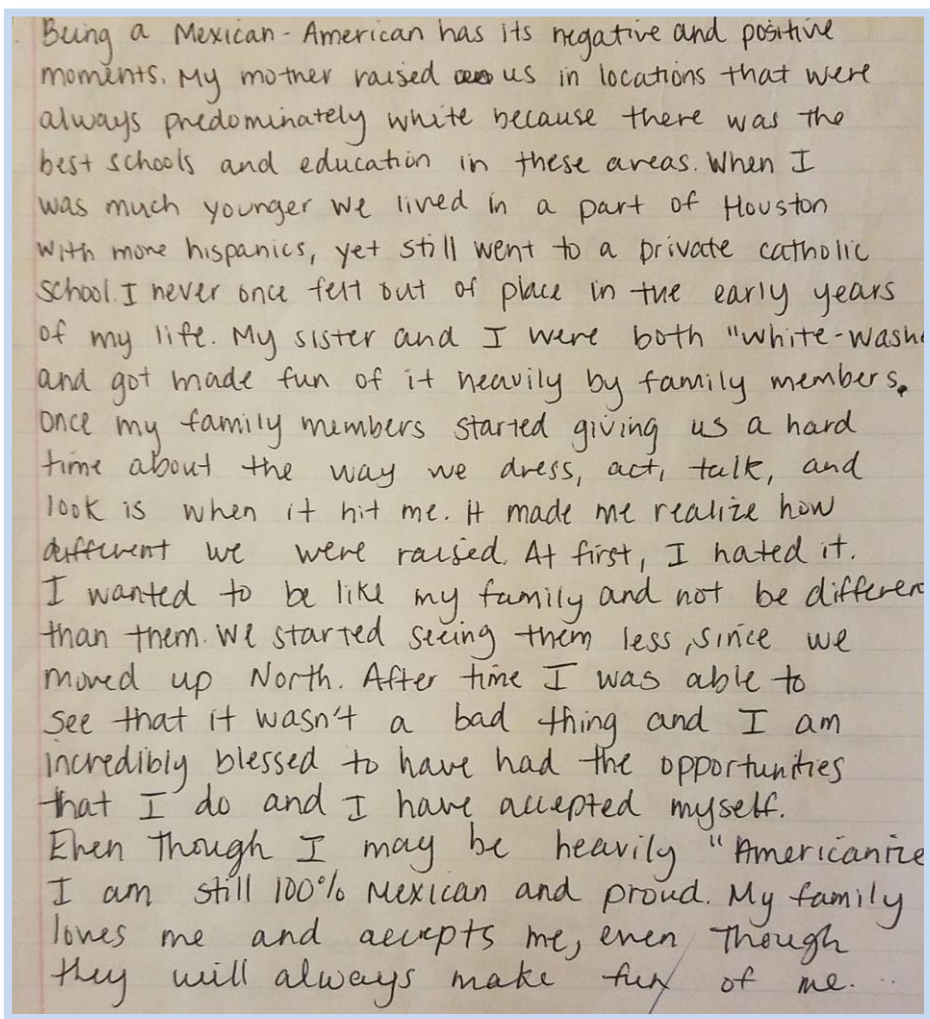 Being a Mexican-American has its negative and positive
moments. My mother raised us in locations that were
always predominately white because there was the
best schools and education in these areas. When I
was much younger we lived in a part of Houston
with more hispanics, yet still went to a private catholic
school. I never once felt out of place in the early years
of my life. My sister and I were both "white-washe
and got made fun of it heavily by family members.
Once my family members started giving us a hard
time about the way we dress, act, talk, and
look is when it hit me. It made me realize how
different we were raised. At first, I hated it.
I wanted to be like my family and not be differen
than them. We started seeing them less, since we
moved up North. After time I was able to
see that it wasn't a bad thing and I am
incredibly blessed to have had the opportunities
that I do and I have accepted myself.
Even though I may be heavily "Americanize
I am still 100% Mexican and proud. My family
loves me and accepts me, even though
they will always make fun of me.